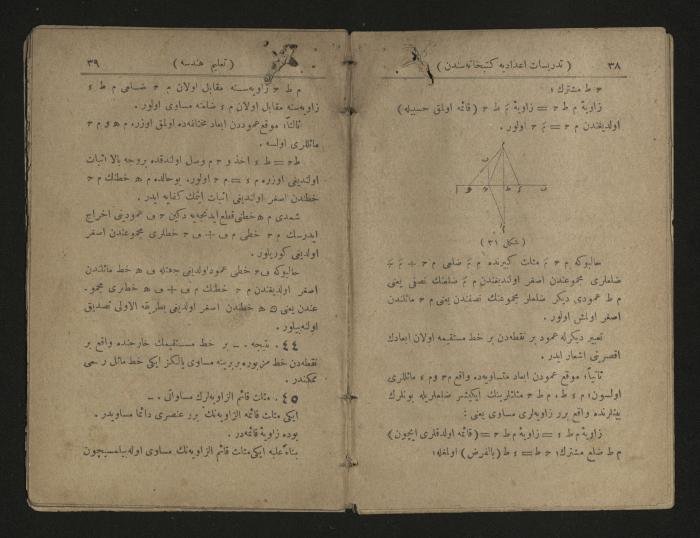 ٣٨ ( تدریسات اعدادیه کتبخانه‌سندن )
ح ط مشترك ؛
زاویهٔ م ط ح = زاویهٔ مَ ط ح ( قائمه اولمق حسبیله )
اولدیغندن م ح = مَ ح اولور .
( شکل ٣١ )
حالبوکه م ح مَ مثلث کبیرنده م مَ ضلعی م ح + مَ ح
ضلعلری مجموعندن اصغر اولدیغندن م مَ ضلعنك نصفی یعنی
م ط عمودی دیکر ضلعلر مجموعنك نصفندن یعنی م ح مائلندن
اصغر اولمش اولور .
تعبیر دیکرله عمود بر نقطه‌دن بر خط مستقیمه اولان ابعادك
اقصرینی اشعار ایدر .
ثانیاً؛ موقع عمودن ابعاد متساویه‌ده واقع م ح و م ء مائللری
اولسون؛ م ء ط ، م ط ح مثلثلرینك ایکیشر ضلعلریله بونلرك
بینلرنده واقع برر زاویه‌لری مساوی یعنی :
زاویهٔ م ط ء = زاویهٔ م ط ح = ( قائمه اولدقلری ایچون )
م ط ضلع مشترك؛ ح ط = ء ط ( بالفرض ) اولمغله؛
( تعلیم هندسه ) ٣٩
م ط ح زاویه‌سنه مقابل اولان م ح ضلعی م ط ء
زاویه‌سنه مقابل اولان م ء ضلعنه مساوی اولور .
ثالثاً؛ موقع عموددن ابعاد مختلفه‌ده اولمق اوزره م ه و م ح
مائللری اولسه .
ط ح = ط ء اخذ و ح م وصل اولندقده بروجه بالا اثبات
اولندیغی اوزره م ء = م ح اولور. بوحالده م ه خطنك م ح
خطندن اصغر اولندیغی اثبات ایتمك کفایه ایدر .
شمدی م ه خطنی قطع ایدنجه‌یه دکین ح ف عمودینی اخراج
ایدرسك م ح خطی م ف + ف ح خطلری مجموعندن اصغر
اولدیغی کوریلور .
حالبوکه ف ح خطی عمود اولدیغی جهتله ف ه خط مائلندن
اصغر اولدیغندن م ح خطنك م ف + ف ه خطلری مجمو-
عندن یعنی م ه خطندن اصغر اولدیغی بطریقه الاولی تصدیق
اولنه‌بیلور .
٤٤ . نتیجه . ـ بر خط مستقیمك خارجنده واقع بر
نقطه‌دن خط مزبوره بربرینه مساوی یالکز ایکی خط مائل رسمی
ممکندر .
٤٥ . مثلث قائم الزاویه‌لرك مساواتی . ـ
ایکی مثلث قائمه الزاویه‌نك برر عنصری دائما مساویدر .
بوده زاویهٔ قائمه‌در .
بناءً علیه ایکی مثلث قائم الزاویه‌نك مساوی اوله‌بیلمسیچون